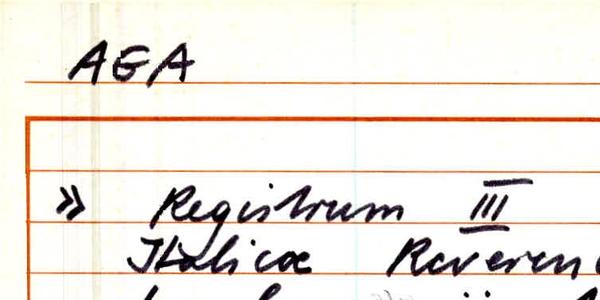 AGA
» Registrum III
Italicæ Reveren